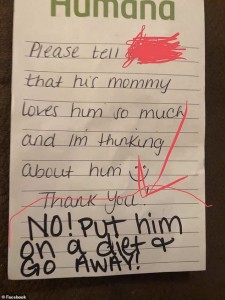 Humana
Please tell
that his mommy
loves him so much
and Im thinking
about him
Thank you
NO! Put him
on a diet &
GO AWAY!
© Facebook